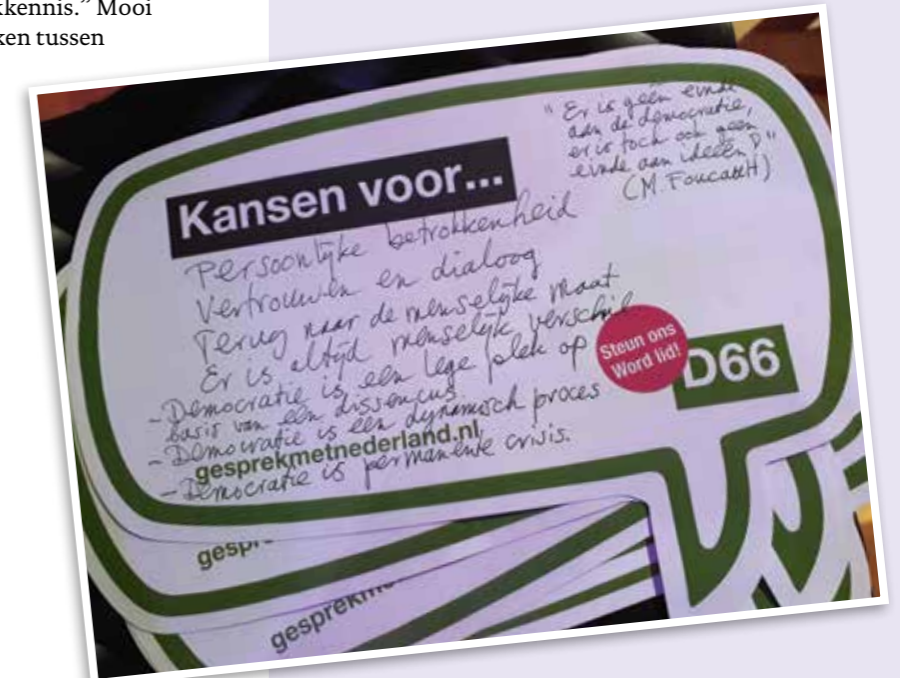 kkennis.” Mooi
ken tussen
Kansen voor...
" Er is geen einde
aan de democratie,
er is toch ook geen
einde aan ideeën?"
(M. Foucault)
Persoonlijke betrokkenheid
Vertrouwen en dialoog
Terug naar de menselijke maat
Er is altijd menselijk verschil
- Democratie is een lege plek op
basis van een dissensus.
- Democratie is een dynamisch proces
gesprekmetnederland.nl
- Democratie is permanente crisis.
Steun ons
Word lid!
D66
gespr
gesprekm